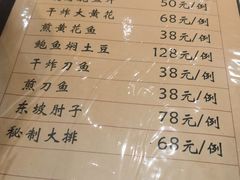 50元/例
干炸大黄花 68元/例
煎黄花鱼 38元/例
鲍鱼焖土豆 128元/例
干炸刀鱼 38元/例
煎刀鱼 38元/例
东坡肘子 78元/例
秘制大排 68元/例